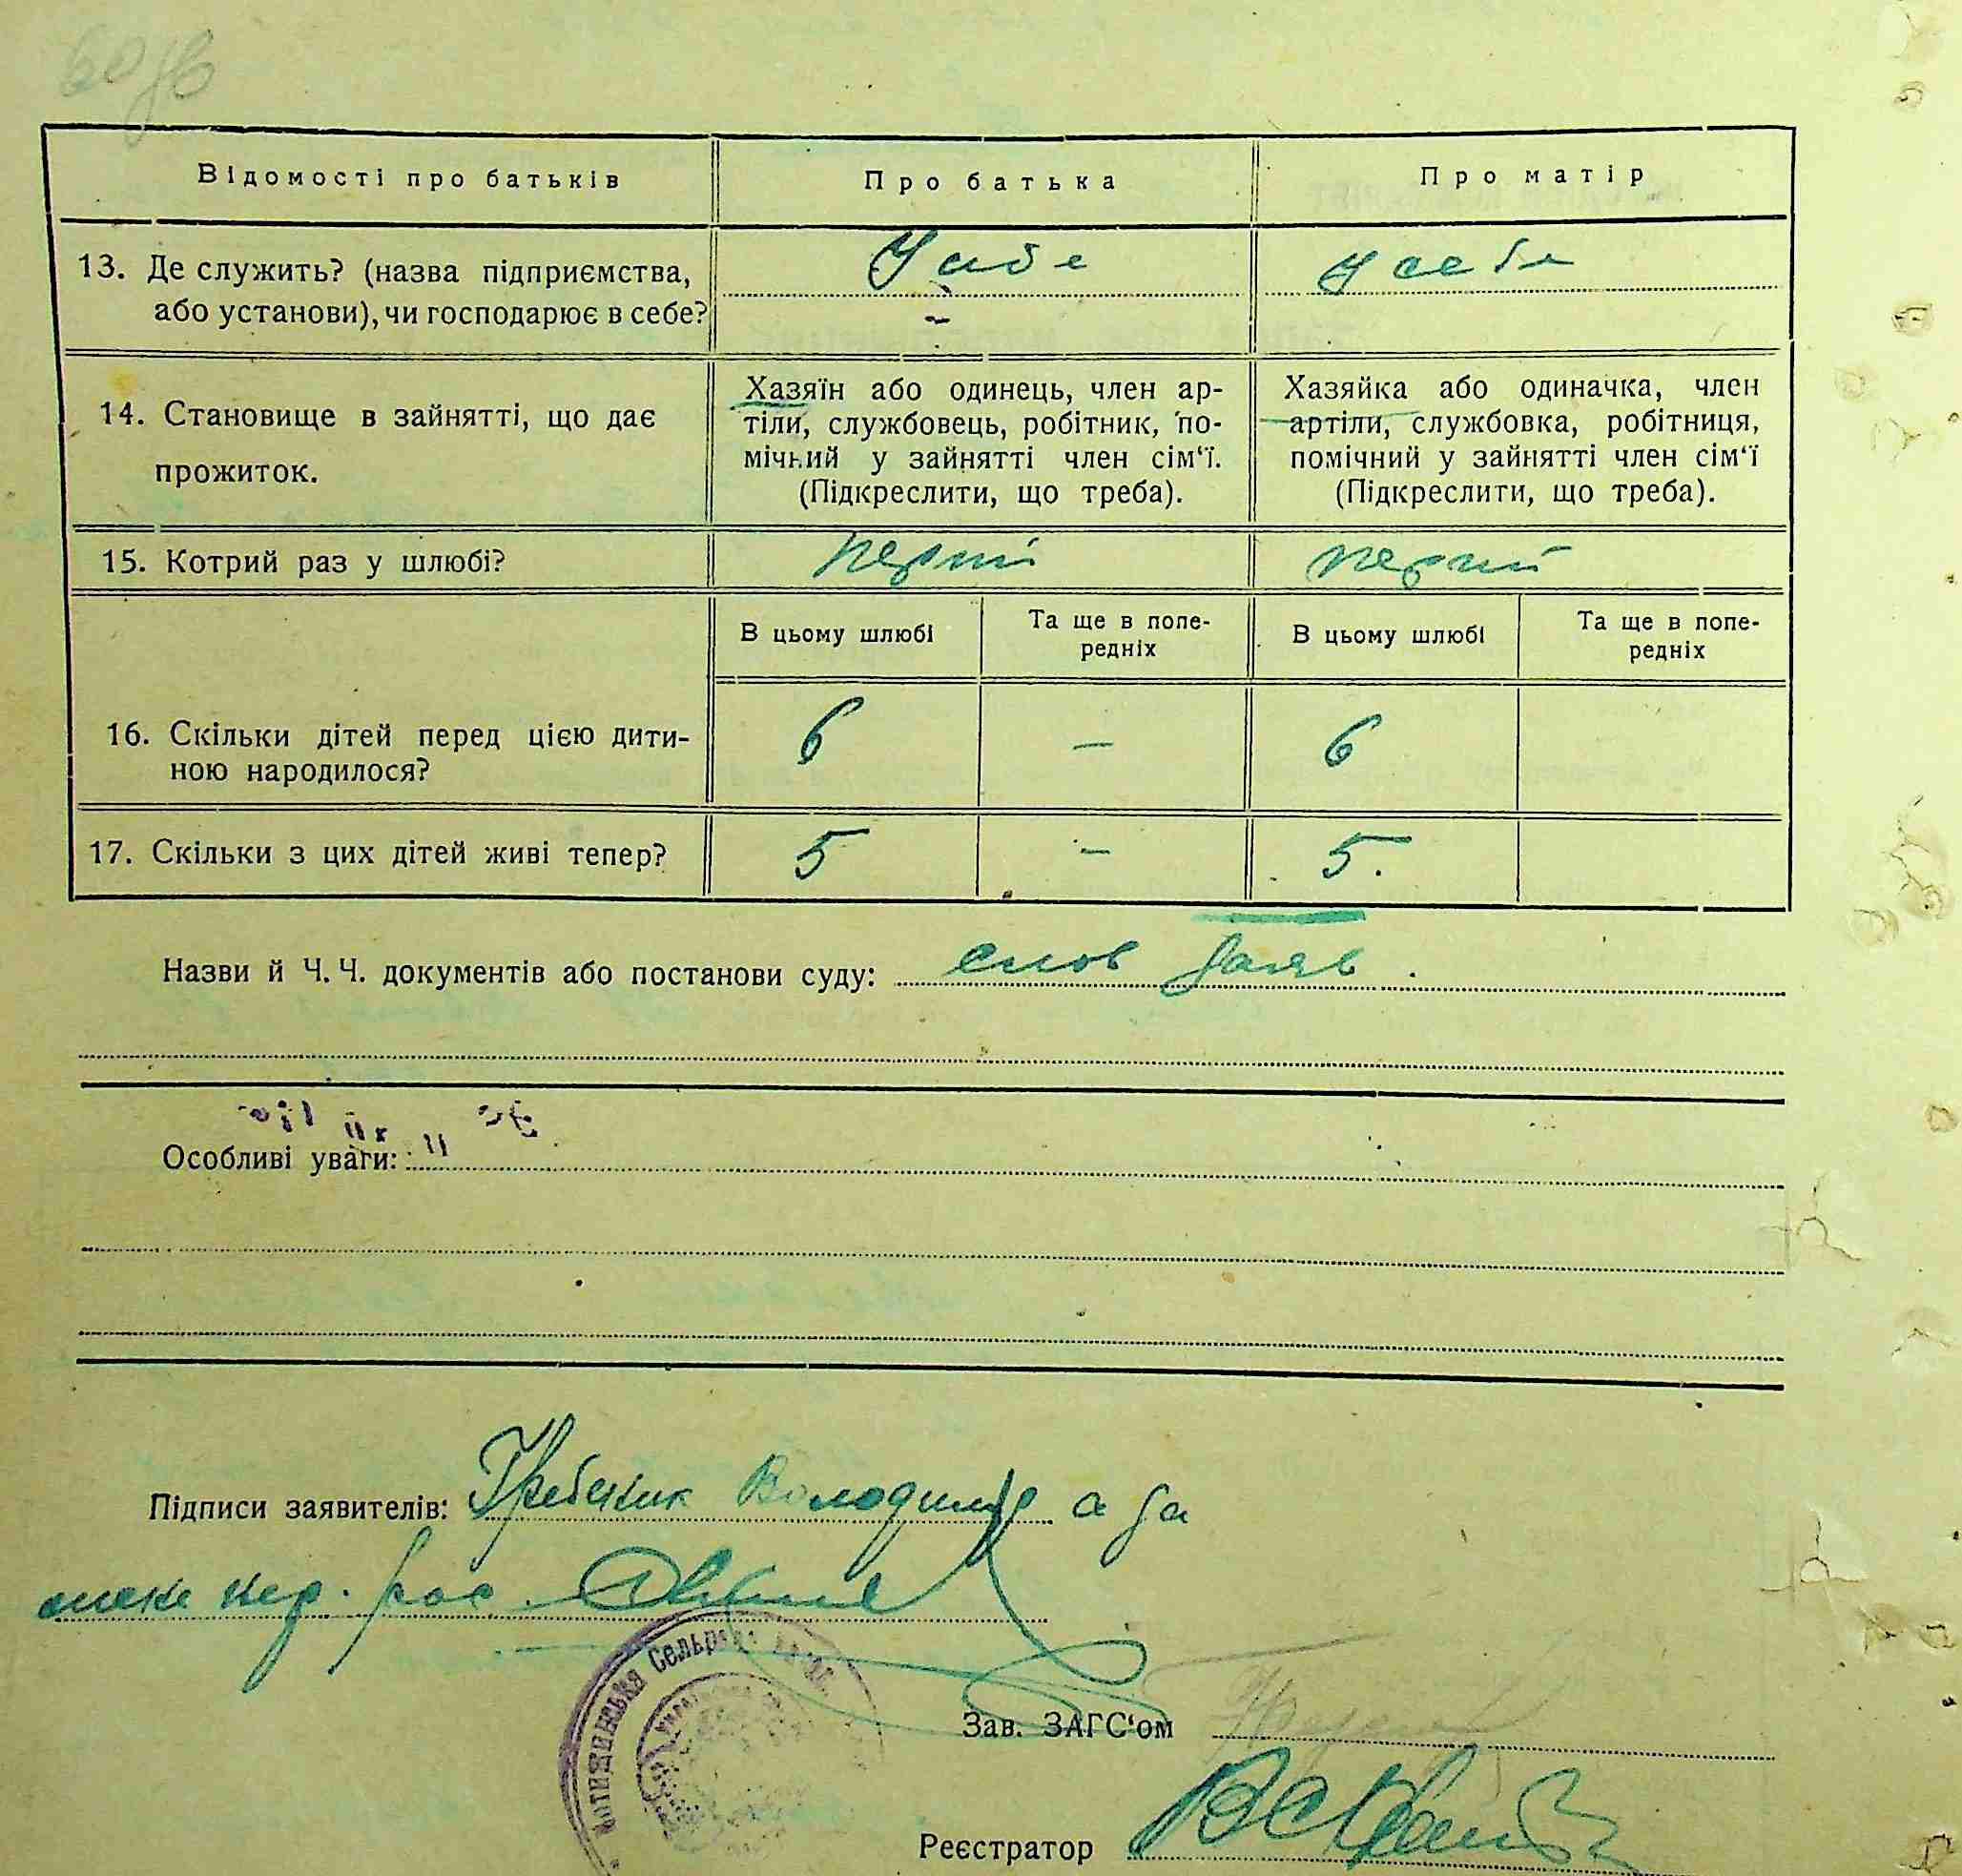 Відомості про батьків
Про батька
Про матір
13. Де служить? (назва підприємства,
або установи), чи господарює в себе?
У себе
У себе
14. Становище в зайнятті, що дає
прожиток.
Хазяїн або одинець, член ар-
тіли, службовець, робітник, по-
мічний у зайнятті член сім‘ї.
(Підкреслити, що треба).
Хазяйка або одиначка, член
артіли, службовка, робітниця,
помічний у зайнятті член сім‘ї
(Підкреслити, що треба).
15. Котрий раз у шлюбі?
перший
перший
В цьому шлюбі
Та ще в попе-
редніх
В цьому шлюбі
Та ще в попе-
редніх
16. Скільки дітей перед цією дити-
ною народилося?
6
—
6
17. Скільки з цих дітей живі тепер?
5
—
5.
Назви й Ч. Ч. документів або постанови суду: слов заяв.
Особливі уваги:
Підписи заявителів: Гребеник Володимир а за
Сельрада
Зав. ЗАГС‘ом
Реєстратор